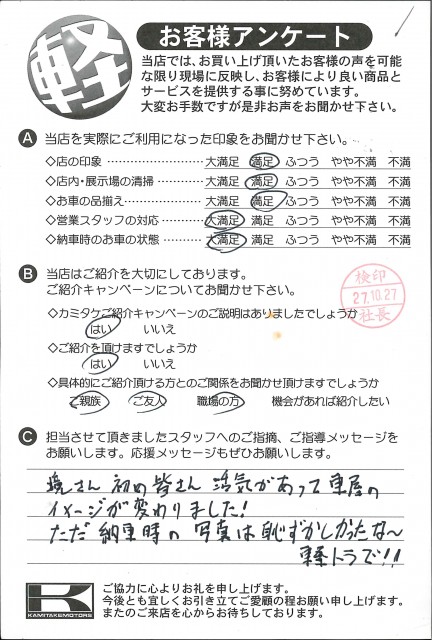 軽
お客様アンケート
当店では、お買い上げ頂いたお客様の声を可能
な限り現場に反映し、お客様により良い商品と
サービスを提供する事に努めています。
大変お手数ですが是非お声をお聞かせ下さい。
A 当店を実際にご利用になった印象をお聞かせ下さい。
◇店の印象 大満足 満足 ふつう やや不満 不満
◇店内・展示場の清掃 大満足 満足 ふつう やや不満 不満
◇お車の品揃え 大満足 満足 ふつう やや不満 不満
◇営業スタッフの対応 大満足 満足 ふつう やや不満 不満
◇納車時のお車の状態 大満足 満足 ふつう やや不満 不満
B 当店はご紹介を大切にしております。
ご紹介キャンペーンについてお聞かせ下さい。
検印
27.10.27
社長
◇カミタケご紹介キャンペーンのご説明はありましたでしょうか
はい いいえ
◇ご紹介を頂けますでしょうか
はい いいえ
◇具体的にご紹介頂ける方とのご関係をお聞かせ頂けますでしょうか
ご親族 ご友人 職場の方 機会があれば紹介したい
C 担当させて頂きましたスタッフへのご指摘、ご指導メッセージを
お願いします。応援メッセージもぜひお願いします。
境さん 初め 皆さん 活気があって 車屋の
イメージが変わりました!
ただ 納車時の 写真は恥ずかしかったな〜
軽トラで!!
K
KAMITAKEMOTORS
ご協力に心よりお礼を申し上げます。
今後とも宜しくお引き立てご愛顧の程お願い申し上げます。
またのご来店を心からお待ちしております。